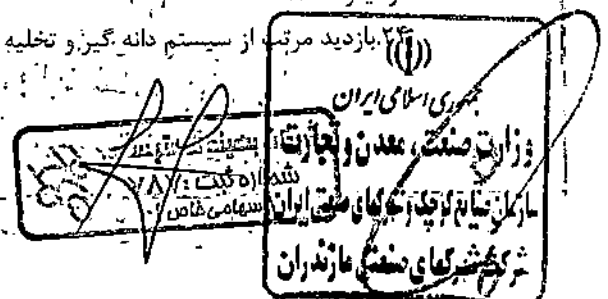 ۲۴.بازدید مرتب از سیستم دانه گیر و تخلیه
جمهوری اسلامی ایران
وزارت صنعت، معدن و تجارت
سازمان صنایع کوچک و شهرکهای صنعتی ایران
شرکت شهرکهای صنعتی مازندران
شماره ثبت : ۷۸۷
سهامی خاص